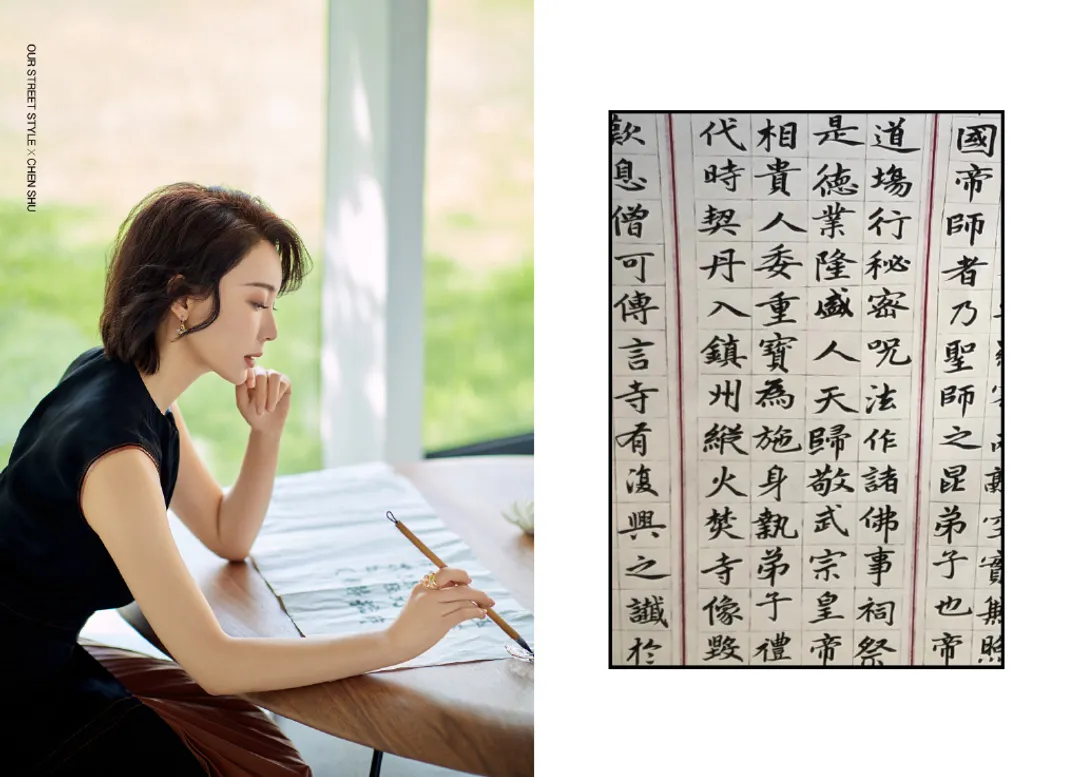 OUR STREET STYLE X CHEN SHU
國帝師者乃聖師之昆弟子也帝
道場行秘密呪法作諸佛事祠祭
是德業隆盛人天歸敬武宗皇帝
相貴人委重寶為施身執弟子禮
代時契丹入鎮州縱火焚寺像毀
歎息僧可傳言寺有復興之讖於